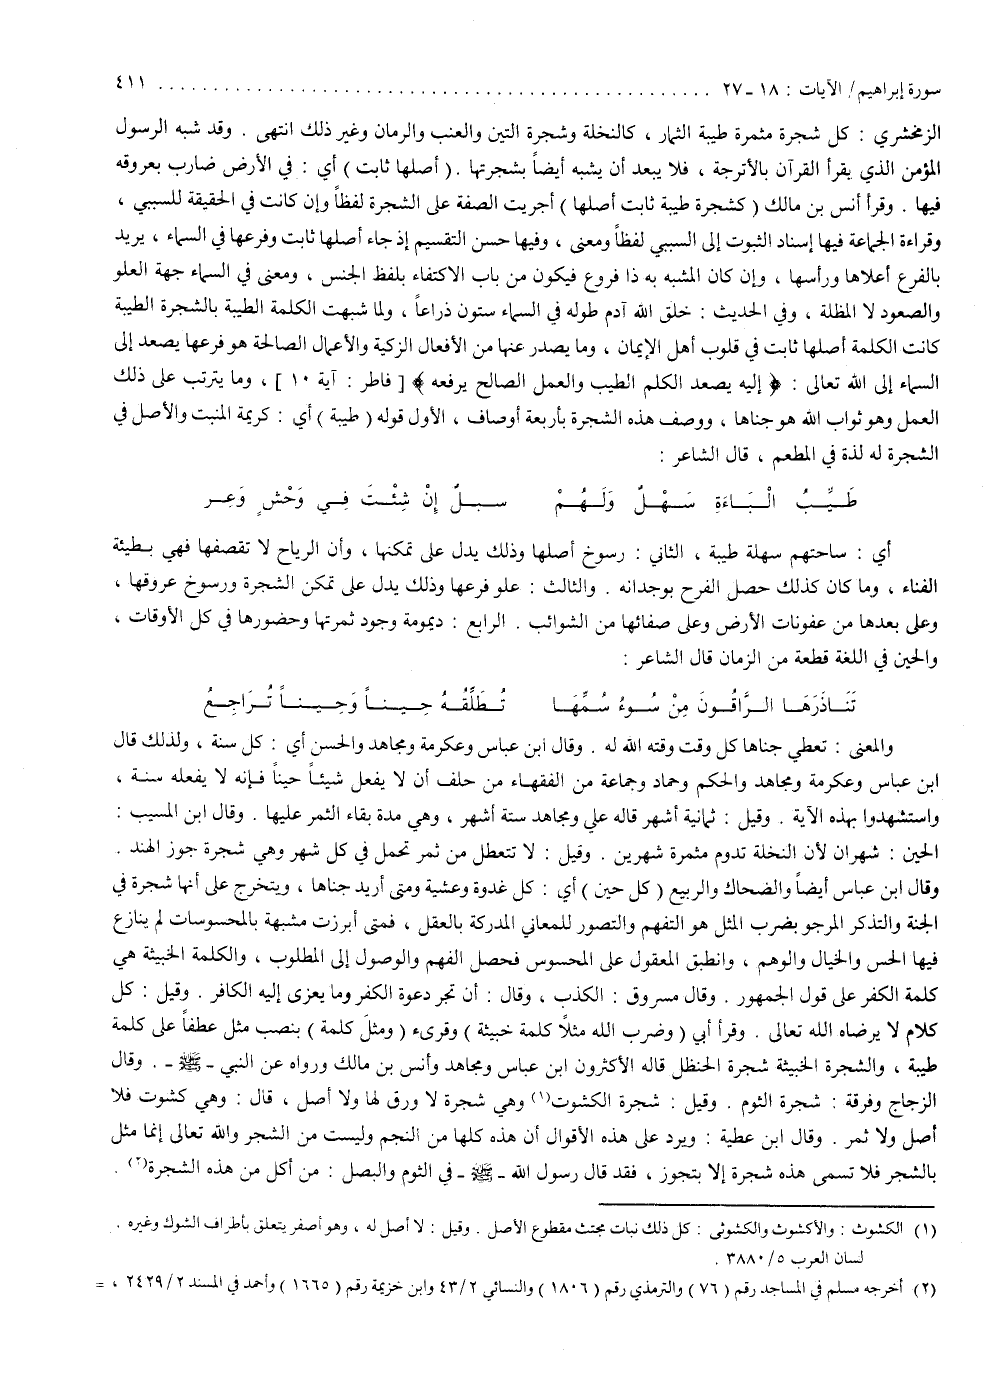 سورة إبراهيم/ الآيات : ١٨ـ٢٧ . . . . . . . . . . . . . . . . . . . . . . . . . . . . . . . . . . . . . . . . . . . . . . . . . ٤١١
الزمخشري : كل شجرة مثمرة طيبة الثمار ، كالنخلة وشجرة التين والعنب والرمان وغير ذلك انتهى . وقد شبه الرسول
المؤمن الذي يقرأ القرآن بالأترجة ، فلا يبعد أن يشبه أيضاً بشجرتها . ( أصلها ثابت ) أي : في الأرض ضارب بعروقه
فيها . وقرأ أنس بن مالك ( كشجرة طيبة ثابت أصلها ) أجريت الصفة على الشجرة لفظاً وإن كانت في الحقيقة للسببي ،
وقراءة الجماعة فيها إسناد الثبوت إلى السببي لفظاً ومعنى ، وفيها حسن التقسيم إذ جاء أصلها ثابت وفرعها في السماء ، يريد
بالفرع أعلاها ورأسها ، وإن كان المشبه به ذا فروع فيكون من باب الاكتفاء بلفظ الجنس ، ومعنى في السماء جهة العلو
والصعود لا المظلة ، وفي الحديث : خلق الله آدم طوله في السماء ستون ذراعاً ، ولما شبهت الكلمة الطيبة بالشجرة الطيبة
كانت الكلمة أصلها ثابت في قلوب أهل الإيمان ، وما يصدر عنها من الأفعال الزكية والأعمال الصالحة هو فرعها يصعد إلى
السماء إلى الله تعالى : ﴿ إليه يصعد الكلم الطيب والعمل الصالح يرفعه ﴾ [ فاطر : آية ١٠ ] ، وما يترتب على ذلك
العمل وهو ثواب الله هو جناها ، ووصف هذه الشجرة بأربعة أوصاف ، الأول قوله ( طيبة ) أي : كريمة المنبت والأصل في
الشجرة له لذة في المطعم ، قال الشاعر :
طَيِّبُ الْبَاءَةِ سَهْلٌ وَلَهُمْ سبلٌ إِنْ شِئْتَ فِي وَحْشٍ وَعِر
أي : ساحتهم سهلة طيبة ، الثاني : رسوخ أصلها وذلك يدل على تمكنها ، وأن الرياح لا تقصفها فهي بطيئة
الفناء ، وما كان كذلك حصل الفرح بوجدانه . والثالث : علو فرعها وذلك يدل على تمكن الشجرة ورسوخ عروقها ،
وعلى بعدها من عفونات الأرض وعلى صفائها من الشوائب . الرابع : ديمومة وجود ثمرتها وحضورها في كل الأوقات ،
والحين في اللغة قطعة من الزمان قال الشاعر :
تَنَاذَرَهَا الرَّاقُونَ مِنْ سُوءُ سُمِّهَا تُطَلِّقُهُ حِيناً وَحِيناً تُرَاجِعُ
والمعنى : تعطي جناها كل وقت وقته الله له . وقال ابن عباس وعكرمة ومجاهد والحسن أي : كل سنة ، ولذلك قال
ابن عباس وعكرمة ومجاهد والحكم وحماد وجماعة من الفقهاء من حلف أن لا يفعل شيئاً حيناً فإنه لا يفعله سنة ،
واستشهدوا بهذه الآية . وقيل : ثمانية أشهر قاله علي ومجاهد ستة أشهر ، وهي مدة بقاء الثمر عليها . وقال ابن المسيب :
الحين : شهران لأن النخلة تدوم مثمرة شهرين . وقيل : لا تتعطل من ثمر تحمل في كل شهر وهي شجرة جوز الهند .
وقال ابن عباس أيضاً والضحاك والربيع ( كل حين ) أي : كل غدوة وعشية ومتى أريد جناها ، ويتخرج على أنها شجرة في
الجنة والتذكر المرجو بضرب المثل هو التفهم والتصور للمعاني المدركة بالعقل ، فمتى أبرزت مشبهة بالمحسوسات لم ينازع
فيها الحس والخيال والوهم ، وانطبق المعقول على المحسوس فحصل الفهم والوصول إلى المطلوب ، والكلمة الخبيثة هي
كلمة الكفر على قول الجمهور . وقال مسروق : الكذب ، وقال : أن تجر دعوة الكفر وما يعزى إليه الكافر . وقيل : كل
كلام لا يرضاه الله تعالى . وقرأ أبي ( وضرب الله مثلًا كلمة خبيثة ) وقرىء ( ومثلَ كلمة ) بنصب مثل عطفاً على كلمة
طيبة ، والشجرة الخبيثة شجرة الحنظل قاله الأكثرون ابن عباس ومجاهد وأنس بن مالك ورواه عن النبي ـ ﷺ ـ . وقال
الزجاج وفرقة : شجرة الثوم . وقيل : شجرة الكشوت(١) وهي شجرة لا ورق لها ولا أصل ، قال : وهي كشوت فلا
أصل ولا ثمر . وقال ابن عطية : ويرد على هذه الأقوال أن هذه كلها من النجم وليست من الشجر والله تعالى إنما مثل
بالشجر فلا تسمى هذه شجرة إلا بتجوز ، فقد قال رسول الله ـ ﷺ ـ في الثوم والبصل : من أكل من هذه الشجرة(٢) .
(١) الكشوث : والأكشوث والكشوثى : كل ذلك نبات مجتث مقطوع الأصل . وقيل : لا أصل له ، وهو أصفر يتعلق بأطراف الشوك وغيره .
لسان العرب ٣٨٨٠/٥ .
(٢) أخرجه مسلم في المساجد رقم ( ٧٦ ) والترمذي رقم ( ١٨٠٦ ) والنسائي ٤٣/٢ وابن خزيمة رقم ( ١٦٦٥ ) وأحمد في المسند ٢٤٢٩/٢ ، =